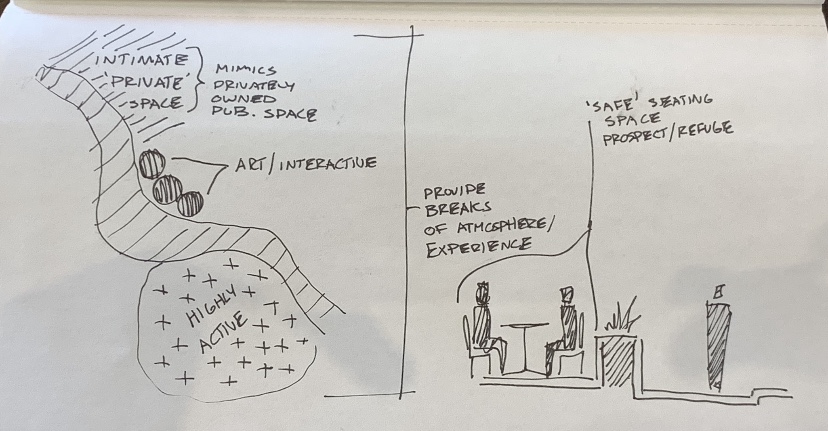 INTIMATE
'PRIVATE'
SPACE
MIMICS
PRIVATELY
OWNED
PUB. SPACE
ART/INTERACTIVE
HIGHLY
ACTIVE
PROVIDE
BREAKS
OF ATMOSPHERE/
EXPERIENCE
'SAFE' SEATING
SPACE
PROSPECT/REFUGE